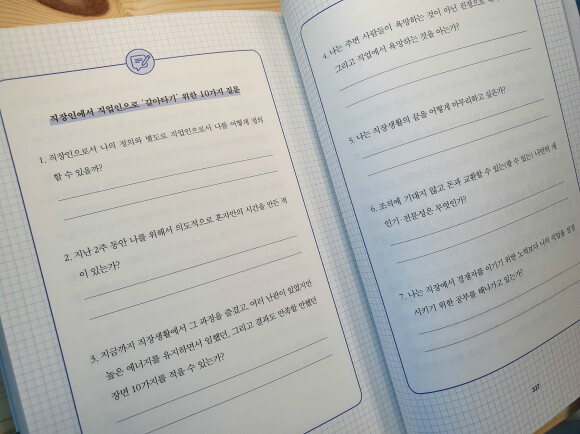 직장인에서 직업인으로 '갈아타기' 위한 10가지 질문
1. 직장인으로서 나의 정의와 별도로 직업인으로서 나를 어떻게 정의
할 수 있을까?
2. 지난 2주 동안 나를 위해서 의도적으로 혼자만의 시간을 만든 적
이 있는가?
3. 지금까지 직장생활에서 그 과정을 즐겼고, 여러 난관이 있었지만
높은 에너지를 유지하면서 일했던, 그리고 결과도 만족할 만했던
장면 10가지를 적을 수 있는가?
4. 나는 주변 사람들이 욕망하는 것이 아닌 진정으로
그리고 직업에서 욕망하는 것을 아는가?
5. 나는 직장생활의 끝을 어떻게 마무리하고 싶은가?
6. 조직에 기대지 않고 돈과 교환할 수 있는(팔 수 있는) 나만의 개
인기·전문성은 무엇인가?
7. 나는 직장에서 경쟁자를 이기기 위한 노력보다 나의 직업을 성장
시키기 위한 공부를 해나가고 있는가?
337